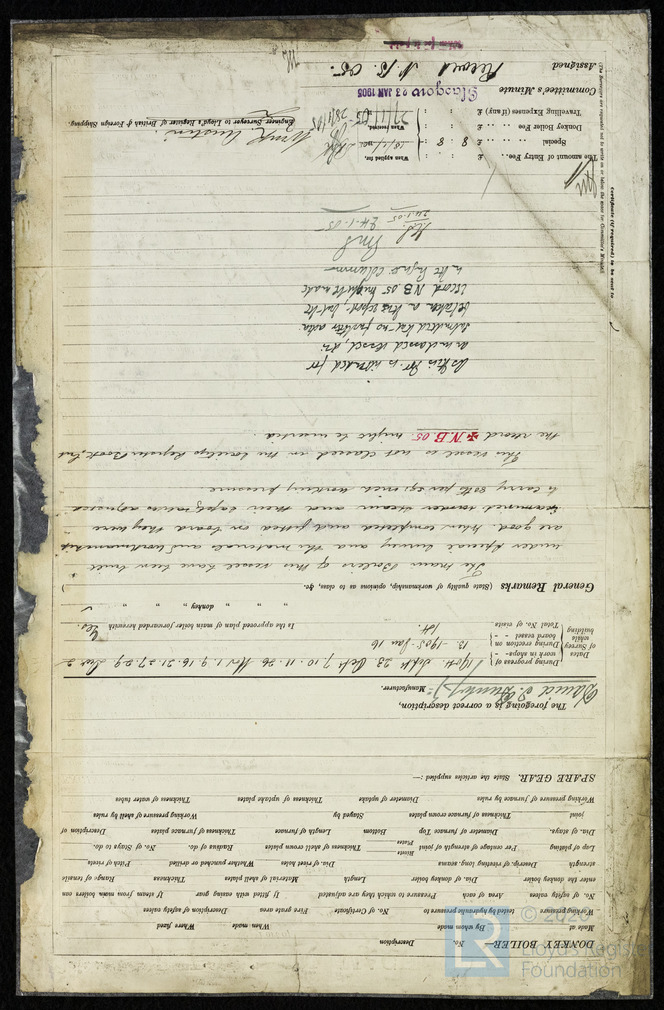 DONKEY BOILER— No. Description
Made at By whom made When made Where fixed
Working pressure tested by hydraulic pressure to No. of Certificate Fire grate area Description of safety valves
No. of safety valves Area of each Pressure to which they are adjusted If fitted with easing gear If steam from main boilers can
enter the donkey boiler Dia. of donkey boiler Length Material of shell plates Thickness Range of tensile
strength Descrip. of riveting long. seams Dia. of rivet holes Whether punched or drilled Pitch of rivets
Lap of plating Per centage of strength of joint Rivets Plates Thickness of shell crown plates Radius of do. No. of Stays to do.
Dia. of stays. Diameter of furnace Top Bottom Length of furnace Thickness of furnace plates Description of
joint Thickness of furnace crown plates Stayed by Working pressure of shell by rules
Working pressure of furnace by rules Diameter of uptake Thickness of uptake plates Thickness of water tubes
SPARE GEAR. State the articles supplied:—
The foregoing is a correct description,
Manufacturer.
Dates of Survey while building
During progress of work in shops - -
1904. Sept 23 Oct 7. 10. 11. 26 Nov 1. 9. 16. 21. 27. 29
During erection on board vessel - - -
13. 1905. Jan 16
Total No. of visits
14.
Is the approved plan of main boiler forwarded herewith Yes
" " " donkey " " "
General Remarks (State quality of workmanship, opinions as to class, &c.
The Main Boilers of this vessel have been built
under Special Survey and the materials and workmanship
are good. When completed and fitted on board they were
examined under steam and their safety valves adjusted
to carry lbs per sq. inch working pressure
This vessel is not classed in the Society's Register Book, but
the record ✠ N.B. 05 might be inserted.
As this Blr. is intended for
an unclassed vessel, it is
submitted that no further action
be taken in this report, but the
record NB 05 might be made
in the Engine Column
24.1.05
24.1.05
The amount of Entry Fee . . £ : :
Special £ 8 : 8 :
Donkey Boiler Fee £ : :
Travelling Expenses (if any) £ : :
When applied for,
When received,
Engineer Surveyor to Lloyd's Register of British & Foreign Shipping.
Committee's Minute
Glasgow 23 JAN 1905
Assigned
Record N.B. 05.
Certificate (if required) to be sent to
(The Surveyors are requested not to write on or below the space for Committee's Minute.)
© 2020
Lloyd's Register
Foundation
LR